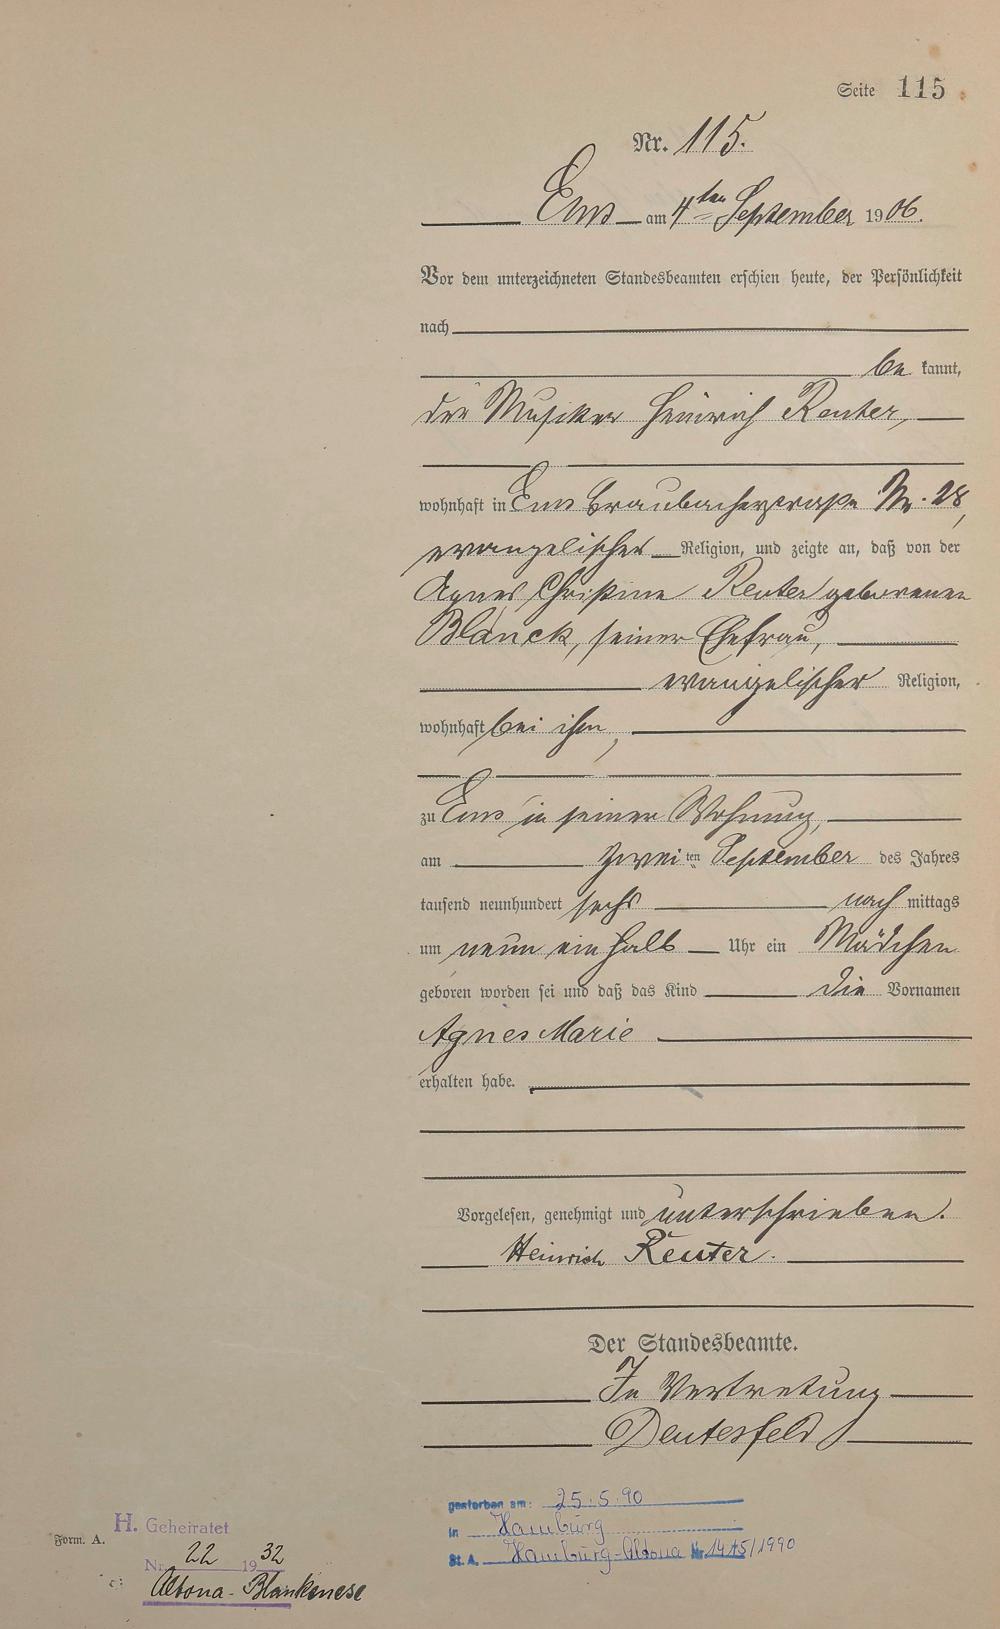 Seite 115
Nr. 115.
Ems am 4ten September 1906.
Vor dem unterzeichneten Standesbeamten erschien heute, der Persönlichkeit
nach
be kannt,
der Musiker Heinrich Reuter,
wohnhaft in Ems Braubacherstraße Nr. 28,
evangelischer Religion, und zeigte an, daß von der
Agnes Christine Reuter geborenen
Blanck, seiner Ehefrau,
evangelischer Religion,
wohnhaft bei ihm,
zu Ems in seiner Wohnung,
am zweiten September des Jahres
tausend neunhundert sechs nach mittags
um neun ein halb Uhr ein Mädchen
geboren worden sei und daß das Kind die Vornamen
Agnes Marie
erhalten habe.
Vorgelesen, genehmigt und unterschrieben.
Heinrich Reuter.
Der Standesbeamte.
In Vertretung
Deutesfeld
gestorben am: 25.5.90
in Hamburg
St. A. Hamburg-Altona Nr. 1415/1990
Form. A.
H. Geheiratet
Nr. 22 1932
Altona-Blankenese